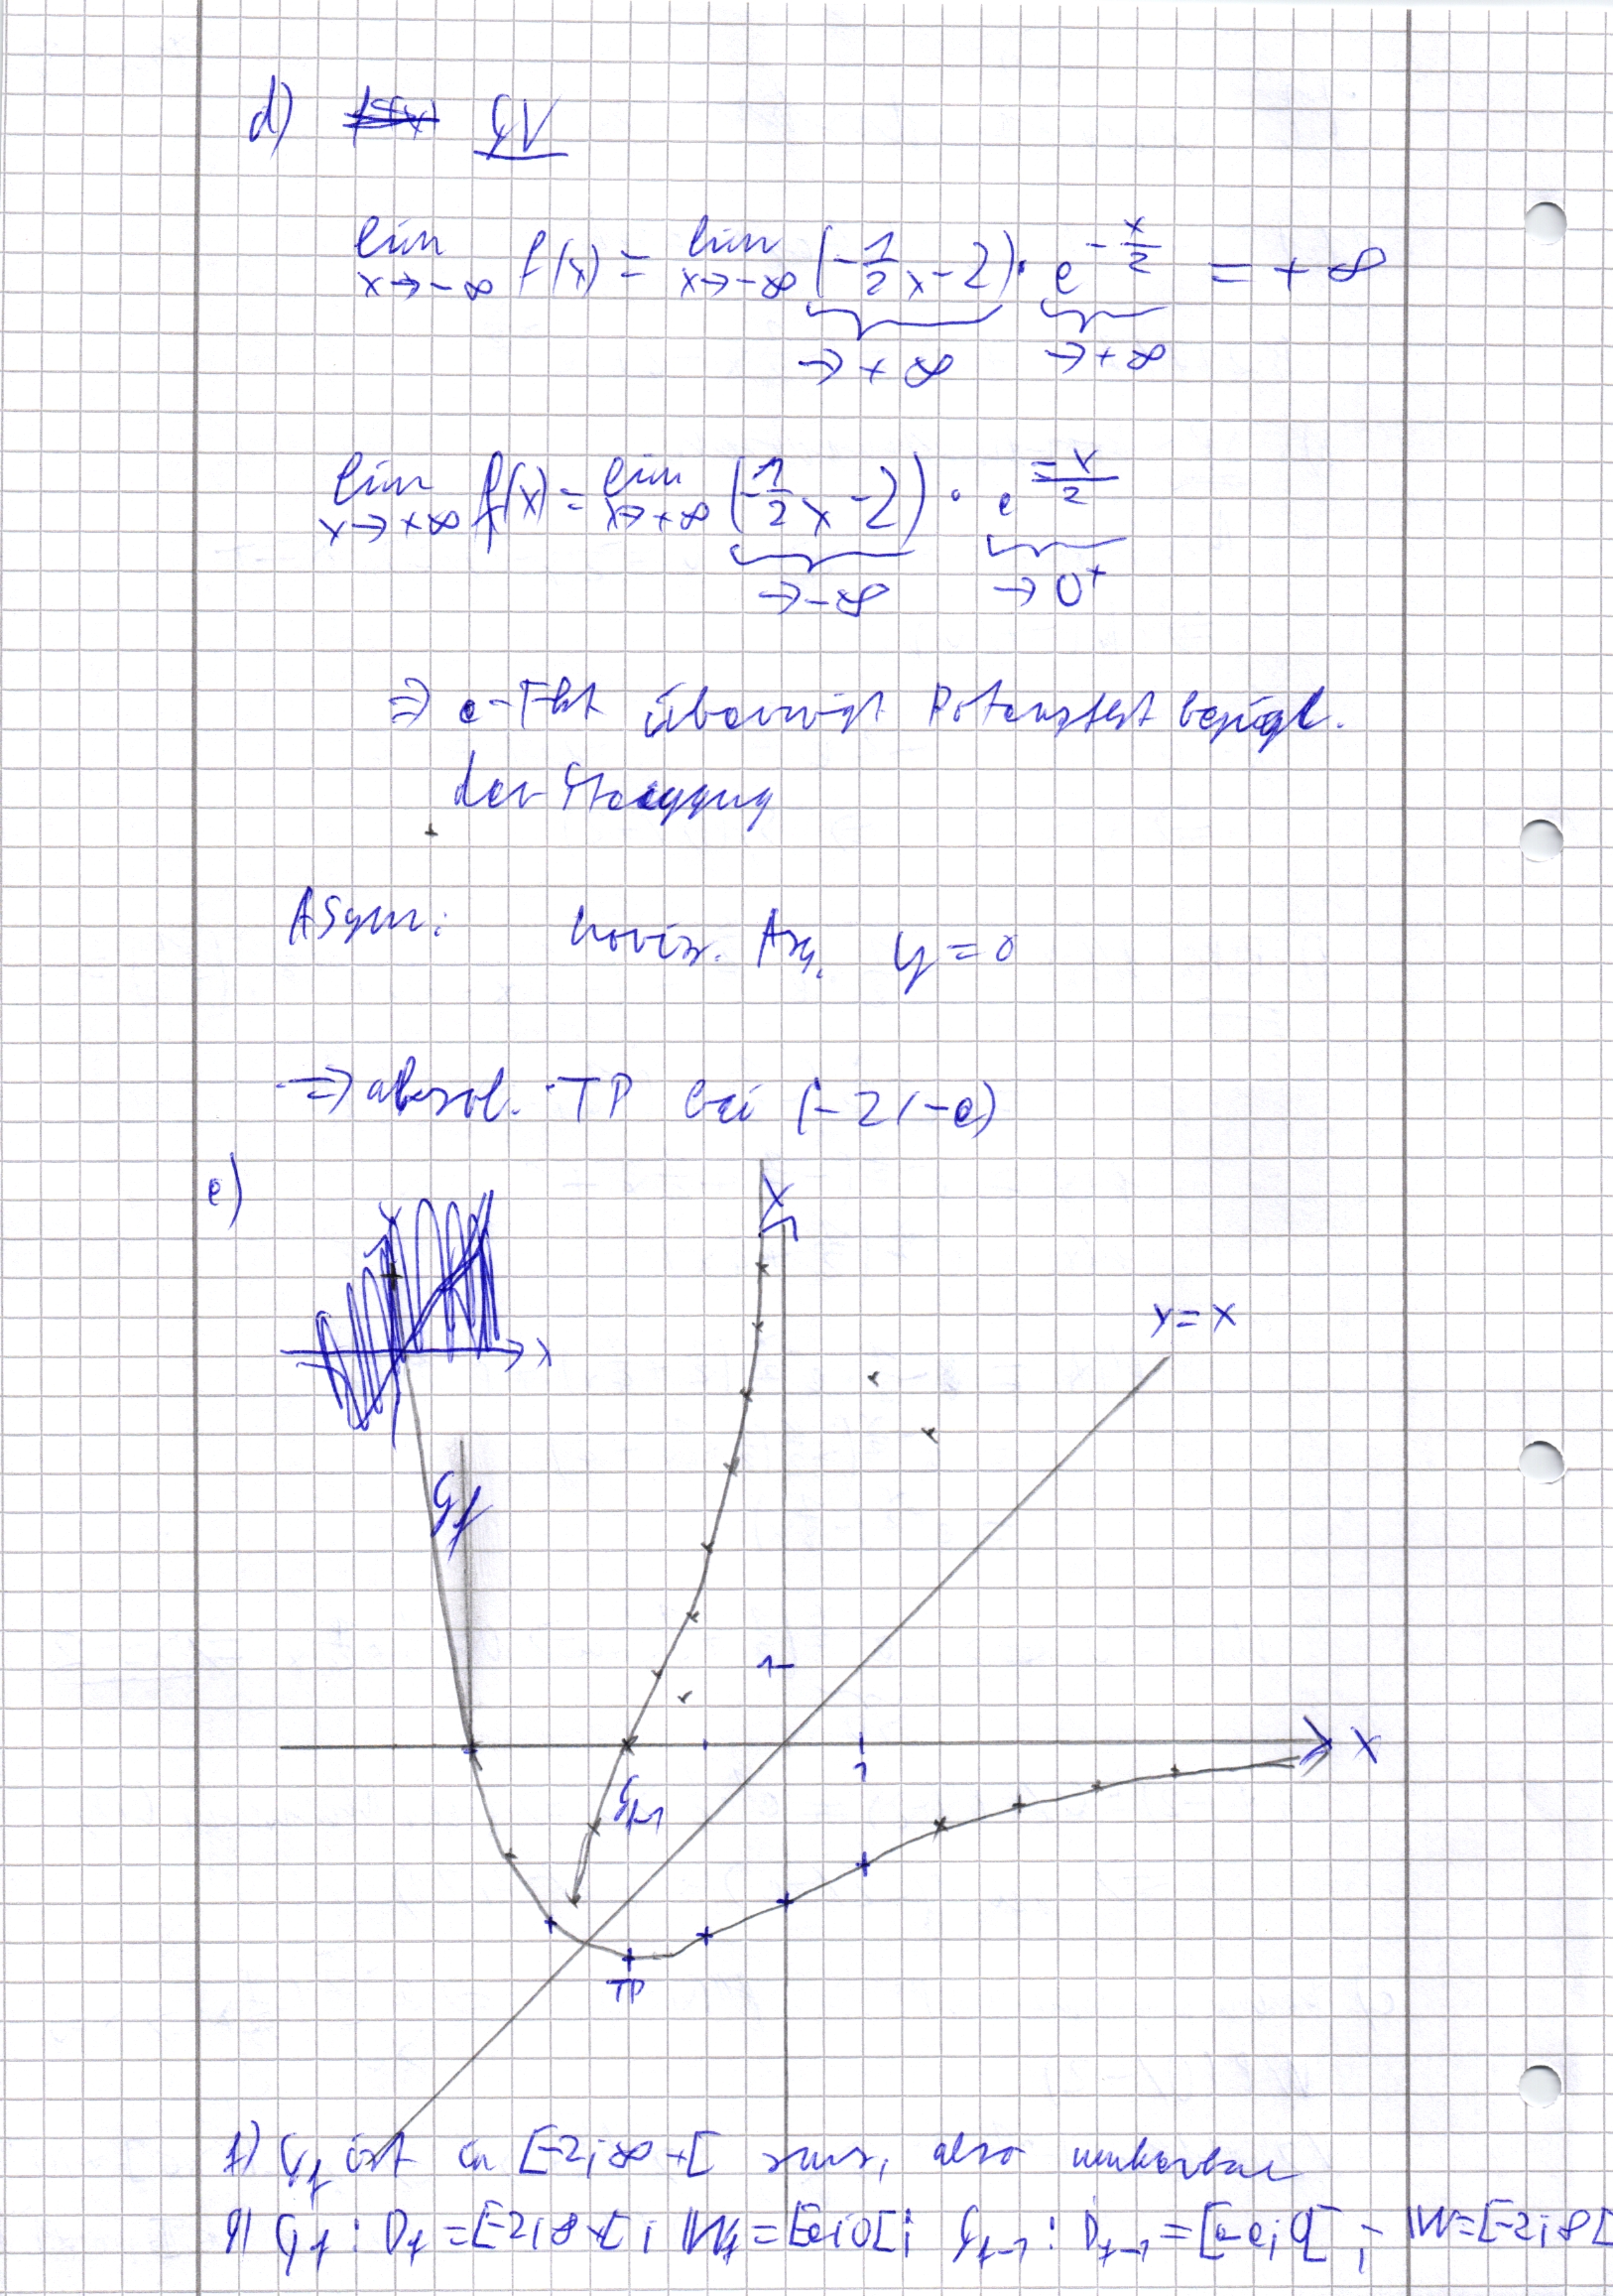 d) GV
lim x→-∞ f(x) = lim x→-∞ (-1/2 x - 2) · e^(-x/2) = +∞
→ +∞ → +∞
lim x→+∞ f(x) = lim x→+∞ (-1/2 x - 2) · e^(-x/2)
→ -∞ → 0⁺
⇒ e-Fkt überwiegt Potenzfkt bezügl.
der Steigung
ASym: horiz. Asy. y = 0
⇒ absol. TP bei (-2/-e)
e)
x
y = x
G_f
1
X
1
G_f-1
TP
f) G_f ist in [-2; ∞+[ sms, also umkehrbar
g) G_f : D_f = [-2; ∞+[ ; W_f = [-e; 0[ ; G_f-1 : D_f-1 = [-e; 0[ ; W = [-2; ∞[